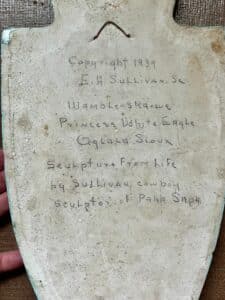 Copyright 1939
E.A. Sullivan, Sr
Princess White Eagle
Oglala Sioux
Sculpture From Life
by Sullivan, cowboy
sculptor of Paha Sapa